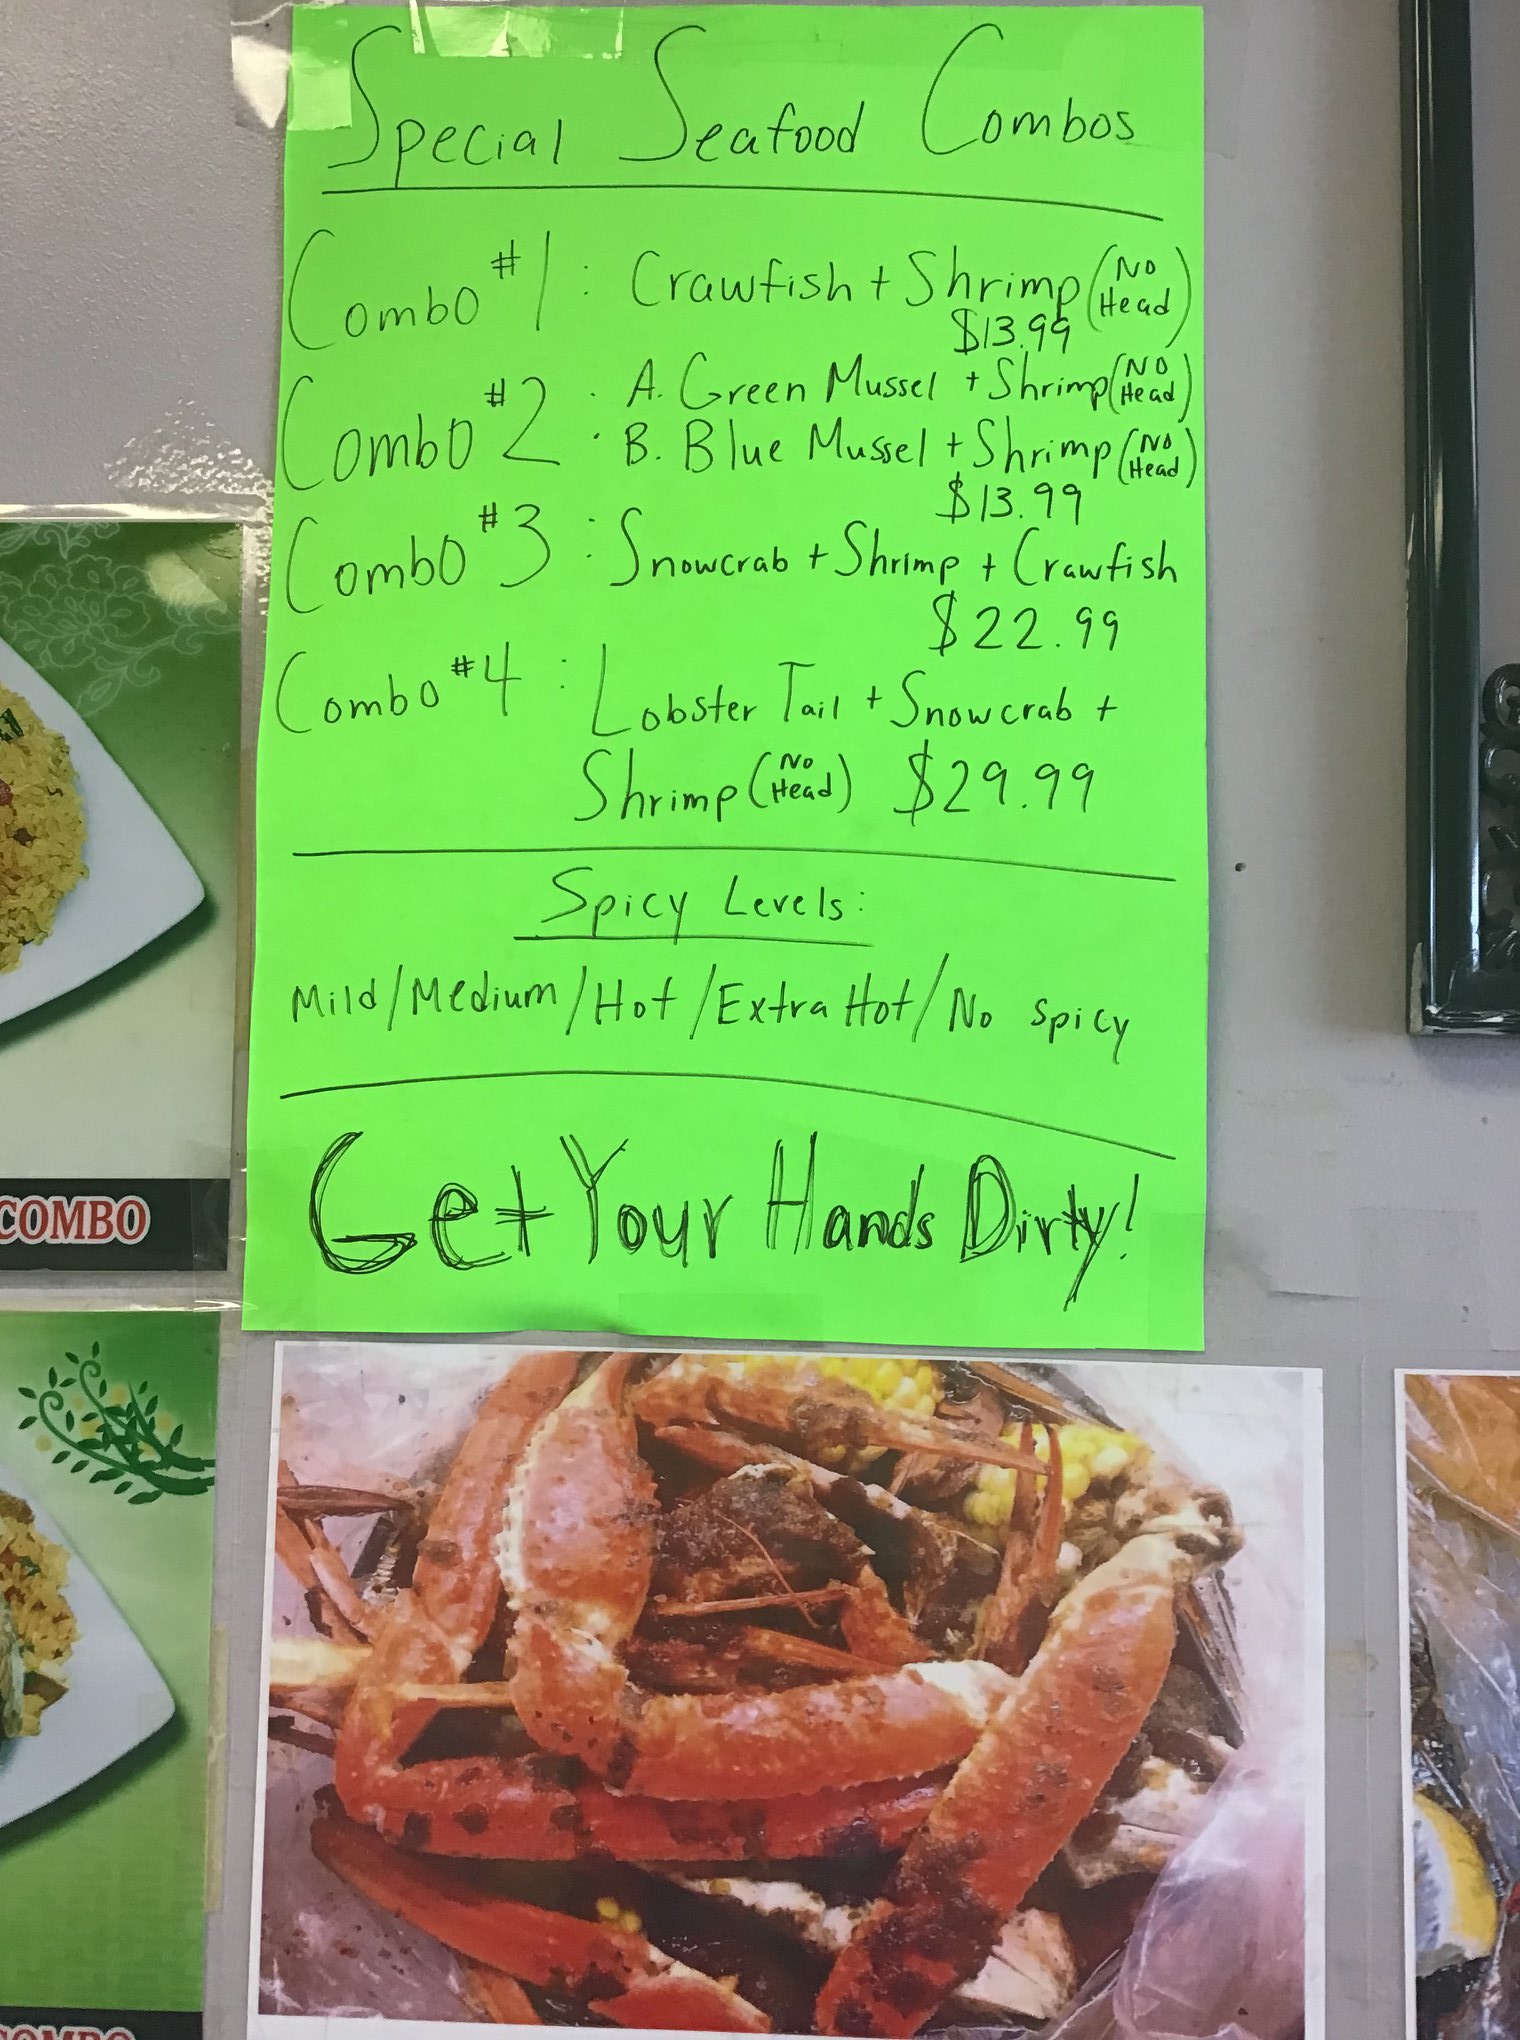 Special Seafood Combos
Combo #1 : Crawfish + Shrimp (No Head)
$13.99
Combo #2 : A. Green Mussel + Shrimp (No Head)
B. Blue Mussel + Shrimp (No Head)
$13.99
Combo #3 : Snowcrab + Shrimp + Crawfish
$22.99
Combo #4 : Lobster Tail + Snowcrab +
Shrimp (No Head) $29.99
Spicy Levels:
Mild/Medium/Hot/Extra Hot/No spicy
Get Your Hands Dirty!
COMBO
COMBO